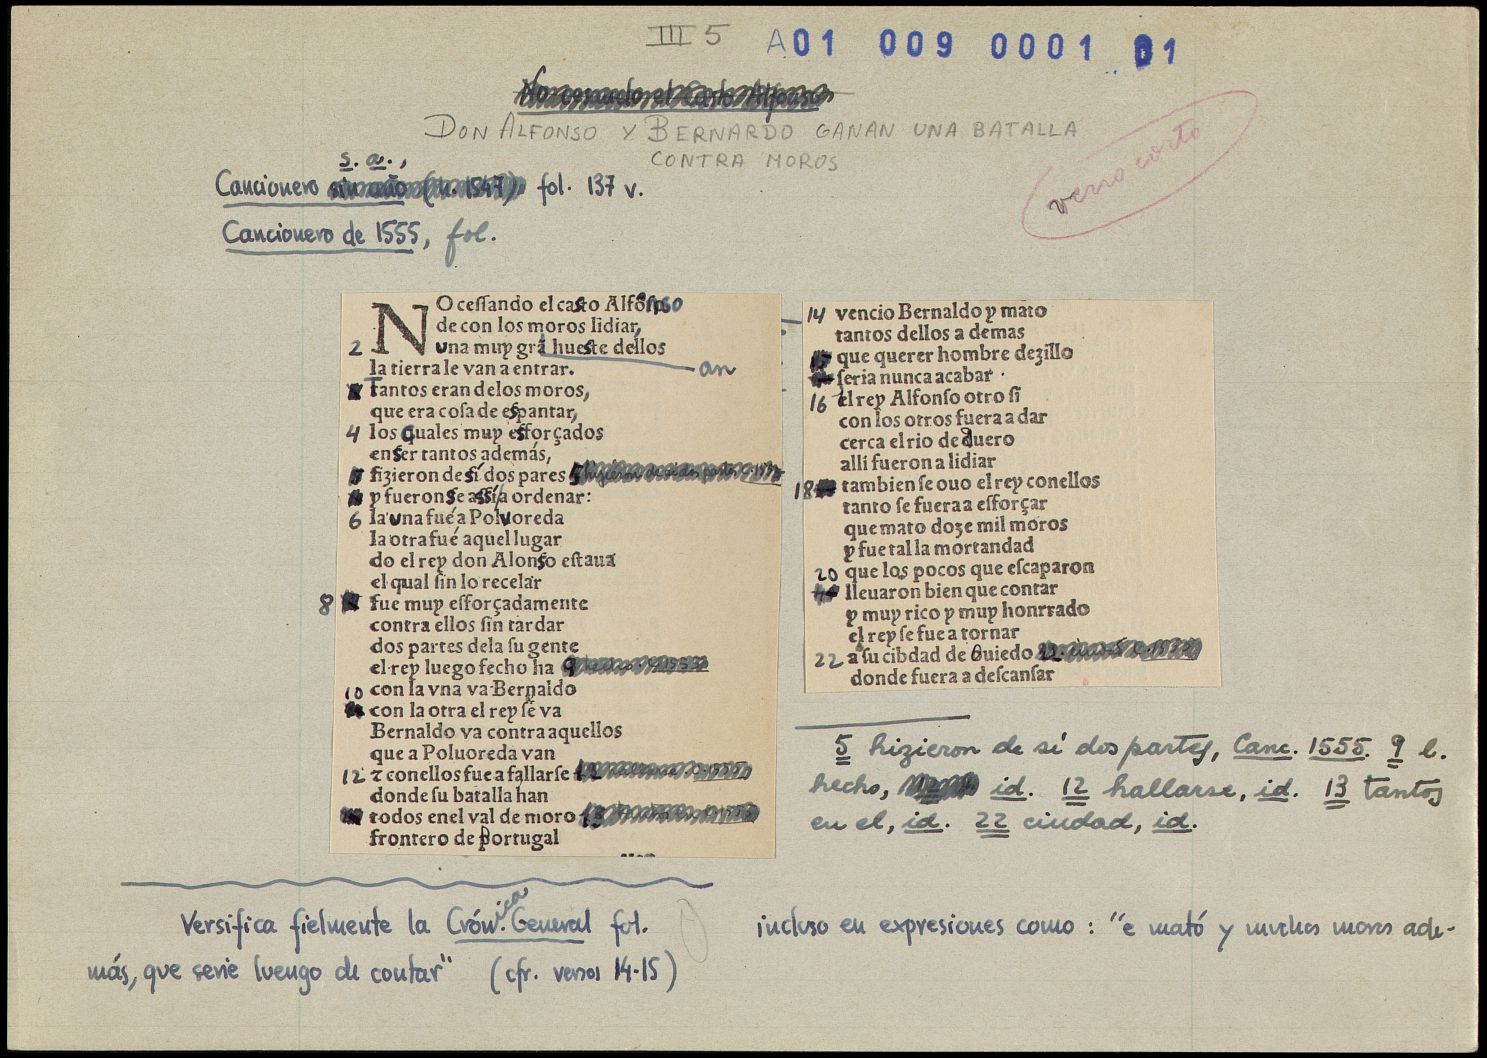 III 5
A01 009 0001 01
No cesando el Casto Alfonso
DON ALFONSO Y BERNARDO GANAN UNA BATALLA
CONTRA MOROS
verso corto
s. a.,
Cancionero sin año (h. 1547) fol. 137 v.
Cancionero de 1555, fol.
NO cessando el casto Alfõso
de con los moros lidiar,
2 una muy grã hueste dellos
la tierra le van a entrar. an
Tantos eran de los moros,
que era cosa de espantar,
4 los quales muy esforçados
en ser tantos además,
fizieron de sí dos pares 5
y fueronse assí a ordenar:
6 la una fué a Polvoreda
la otra fué aquel lugar
do el rey don Alonso estaua
el qual sin lo recelar
8 fue muy esforçadamente
contra ellos sin tardar
dos partes dela su gente
el rey luego fecho ha 9
10 con la vna va Bernaldo
con la otra el rey se va
Bernaldo va contra aquellos
que a Poluoreda van
12 z conellos fue a fallarse 12
donde su batalla han
todos enel val de moro 13
frontero de Portugal
14 vencio Bernaldo y mato
tantos dellos a demas
que querer hombre dezillo
seria nunca acabar
16 el rey Alfonso otro si
con los otros fuera a dar
cerca el rio de duero
alli fueron a lidiar
18 tambien se ouo el rey conellos
tanto se fuera a esforçar
que mato doze mil moros
y fue tal la mortandad
20 que los pocos que escaparon
lleuaron bien que contar
y muy rico y muy honrrado
el rey se fue a tornar
22 a su cibdad de Ouiedo 22
donde fuera a descansar
5 hizieron de sí dos partes, Canc. 1555. 9 l.
hecho, id. 12 hallarse, id. 13 tantos
en el, id. 22 ciudad, id.
Versifica fielmente la Crónica General fol. incluso en expresiones como: "e mató y muchos moros ade-
más, que serie luengo de contar" (cfr. versos 14-15)